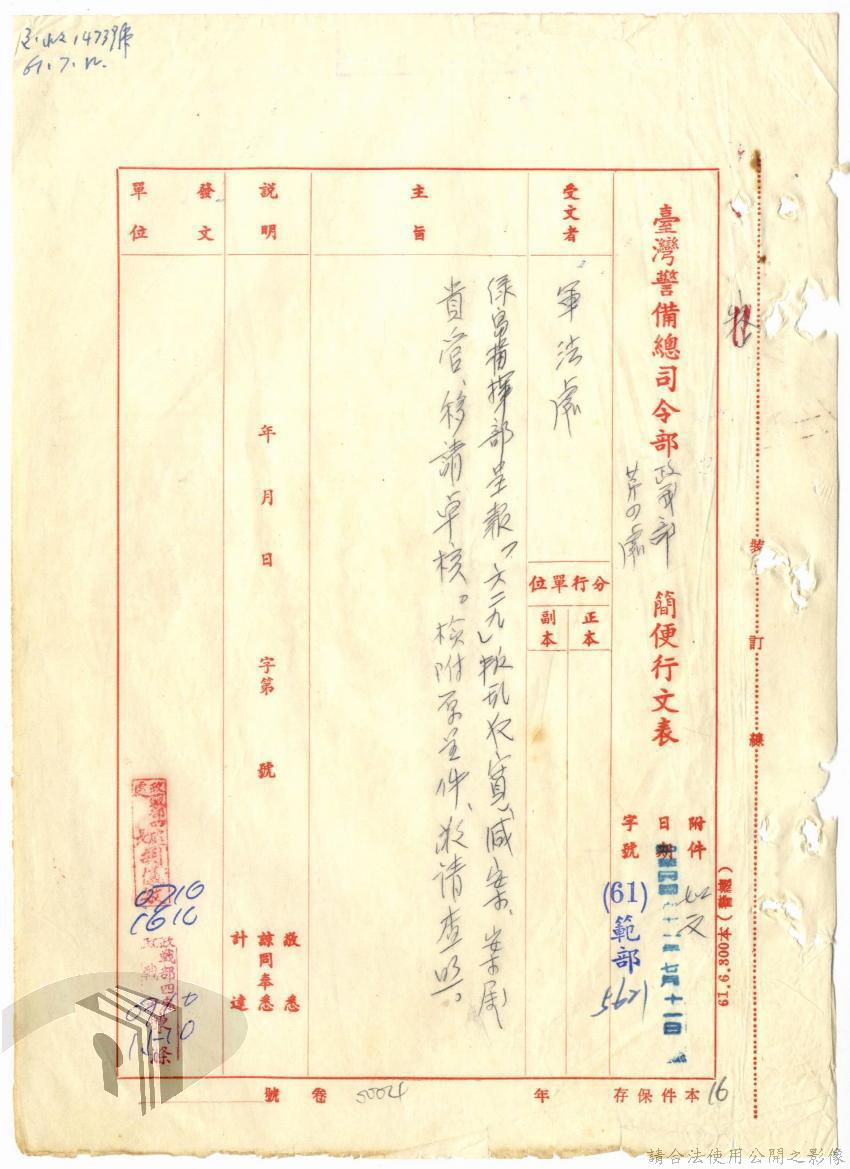 61.7.12.
臺灣警備總司令部
政戰部
第四處
簡便行文表
附件
如文
日期
中華民國六十一年七月十一日
字號
(61)
範部
5621
受文者
軍法處
分行單位
正本
副本
主旨
綠島指揮部呈報「六二九」叛乱犯寬減案、案屬
貴管、移請卓核。檢附原呈件、敬請查照。
說明
年 月 日 字第 號
敬悉
諒同奉悉
計達
發文
單位
政戰部四處
0710
1610
裝 訂 線
61.6.300本(警總)
16
本件保存 年
卷 號
5004
請合法使用公開之影像